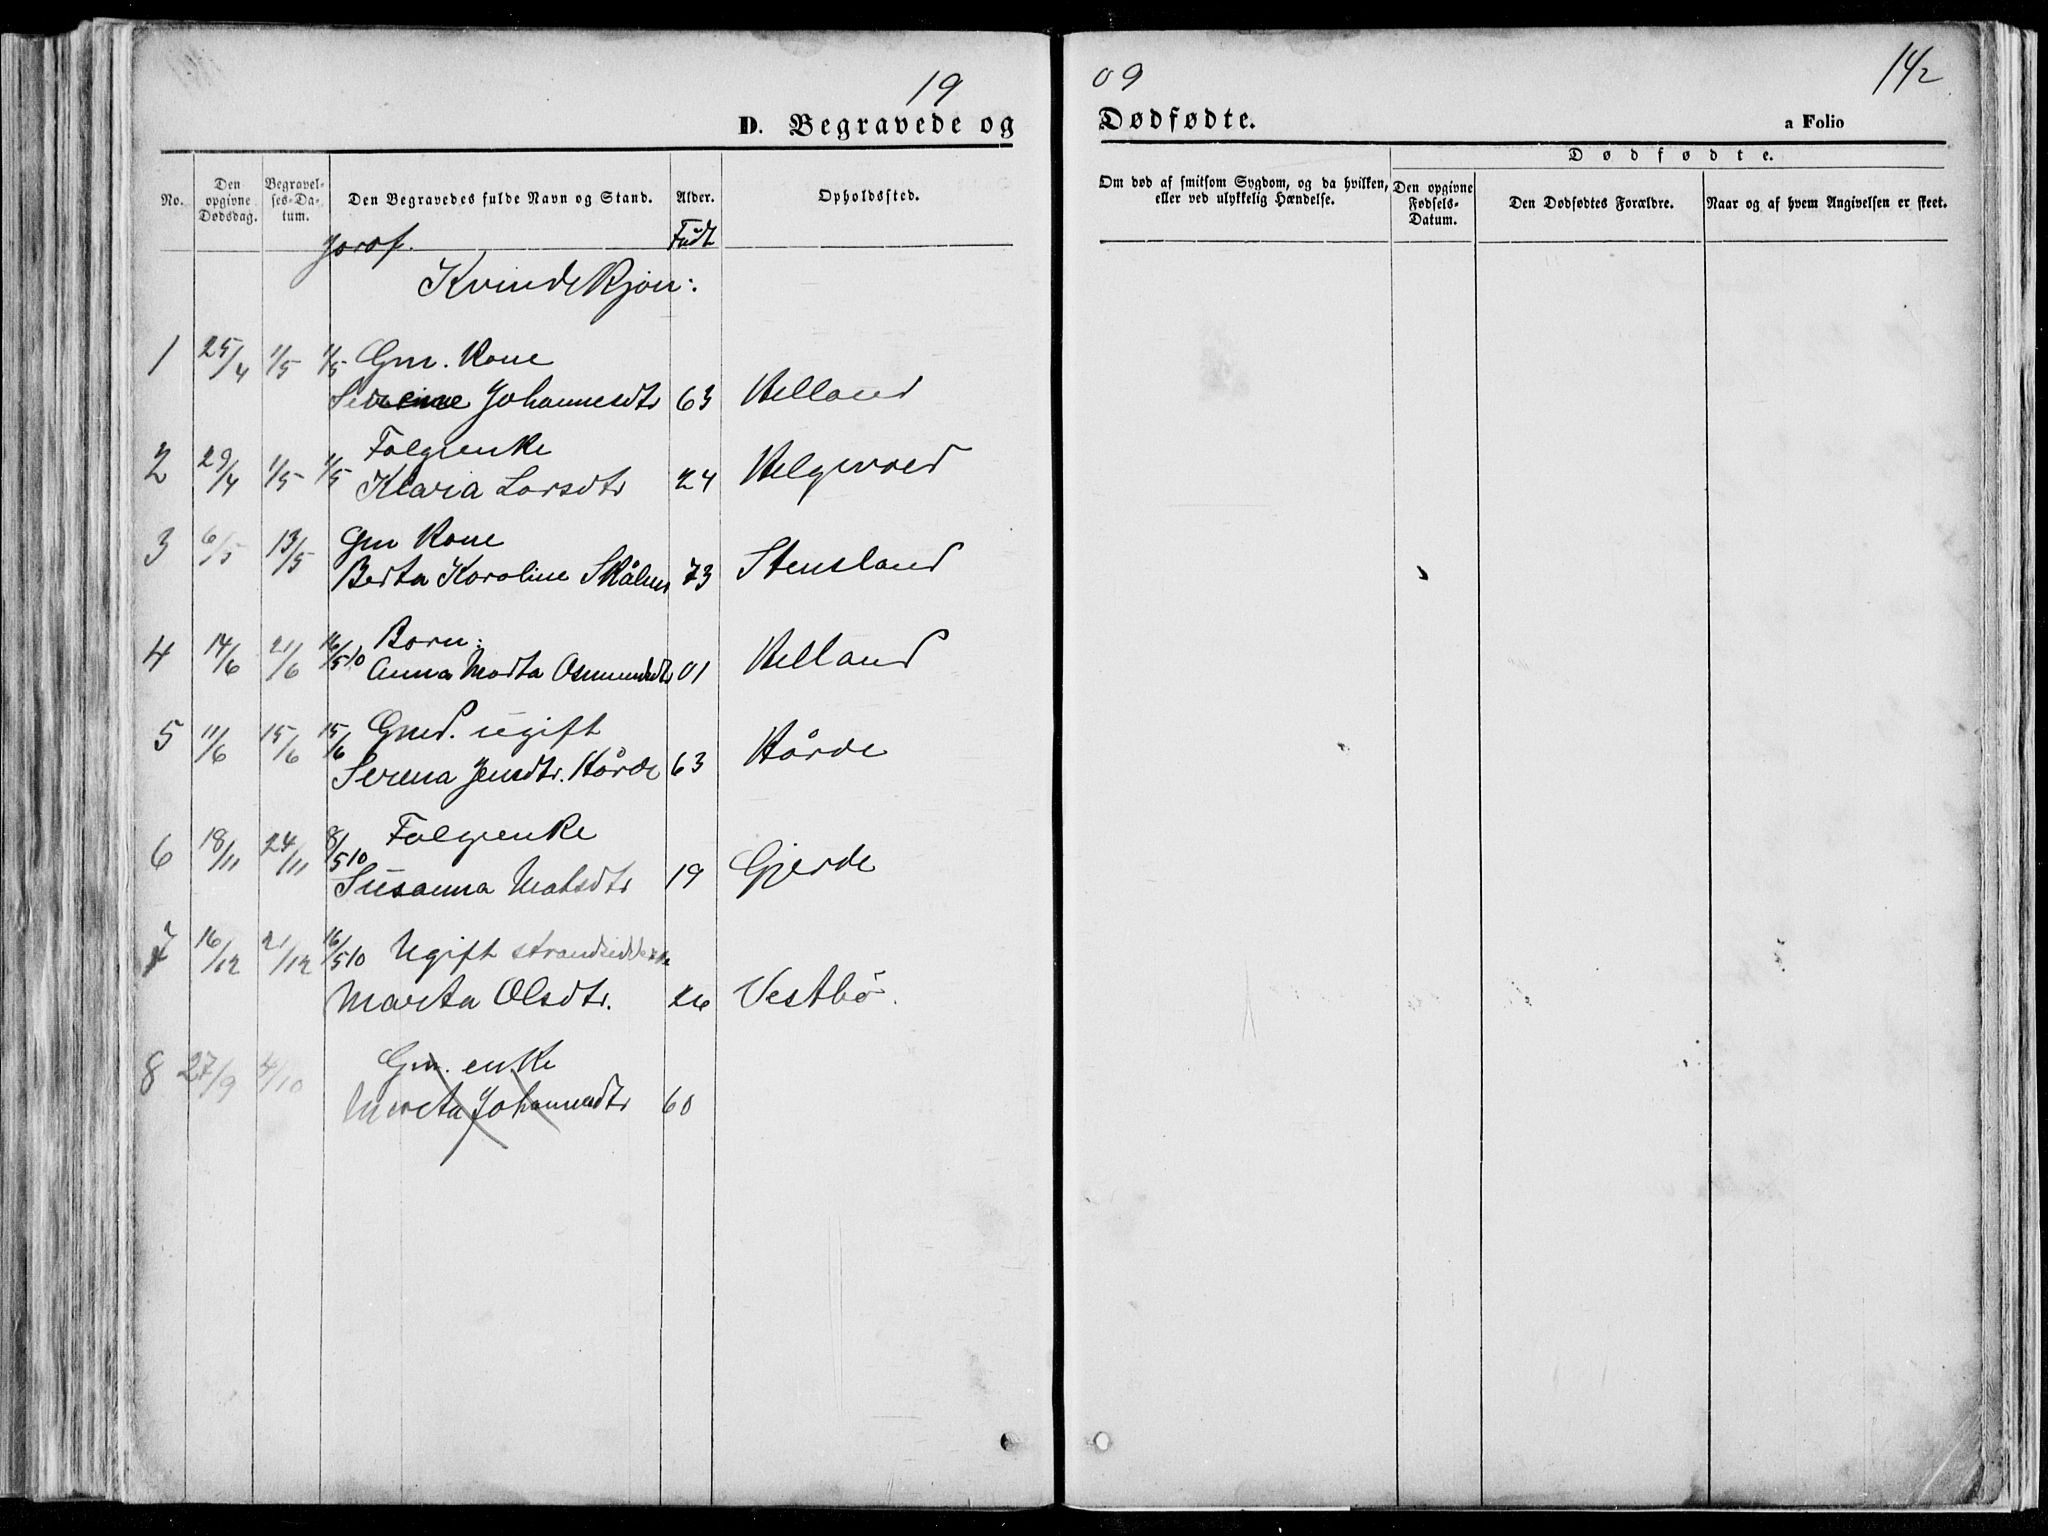 19
09
142
D. Begravede og
Dødfødte.
a Folio
No.
Den opgivne Dødsdag.
Begravelses-Datum.
Den Begravedes fulde Navn og Stand.
Alder.
Opholdssted.
Om død af smitsom Sygdom, og da hvilken, eller ved ulykkelig Hændelse.
Dødfødte.
Den opgivne Fødsels-Datum.
Den Dødfødtes Forældre.
Naar og af hvem Angivelsen er skeet.
Jordf.
Født
Kvindekjøn:
1 25/4 1/5 1/5 Gm. Kone
Johannesdtr 63 Helland
2 29/4 1/5 1/5 Folgienke
Klaria Larsdtr 24 Helgevold
3 6/5 13/5 Gm Kone
Berta Karoline Skålnes 73 Stensland
4 14/6 21/6 16/5 10 Barn:
Anna Marta Osmundsdtr 01 Helland
5 11/6 15/6 15/6 Gmd. ugift
Serena Jensdtr. Hårde 63 Hårde
6 18/11 24/11 8/5 10 Folgienke
Susanna Matsdtr 19 Gjerde
7 16/12 21/12 16/5 10 Ugift strandsidderske
Marta Olsdtr. 26 Vestbö.
8 27/9 4/10 Gm. enke
Marta Johannesdtr 60